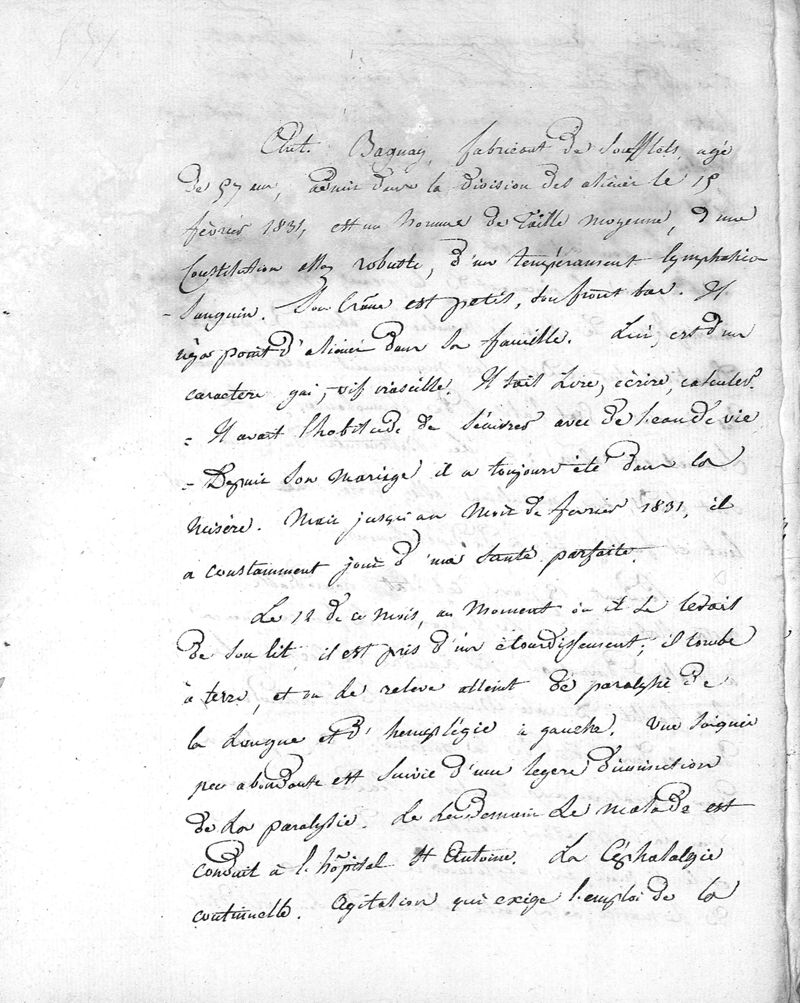 Chret. Baquay, fabricant de soufflets, agé
de 57 ans, admis dans la division des aliénés le 15
février 1831, est un homme de taille moyenne, d'une
Constitution assez robuste, d'un tempérament lymphatico
- Sanguin. Son Crâne est petit, son front bas. Il
n'y a point d'aliénés dans sa famille. Lui, est d'un
caractère gai, vif irascible. Il sait lire, écrire, calculer.
= Il avait l'habitude de s'enivrer avec de l'eau de vie
= Depuis son mariage il a toujours été dans la
Misère. Mais jusqu'au Mois de février 1831, il
a constamment joui d'une Santé parfaite.
Le 12 de ce mois, au Moment où il se levait
de son lit, il est pris d'un étourdissement, il tombe
à terre, et on le releve atteint de paralysie de
la Langue et d'hemiplégie à gauche. Une Saignée
peu abondante est suivie d'une legere diminution
de la paralysie. Le lendemain Le malade est
Conduit à l'hôpital St Antoine. La Céphalalgie
continuelle. Agitation qui exige l'emploi de la